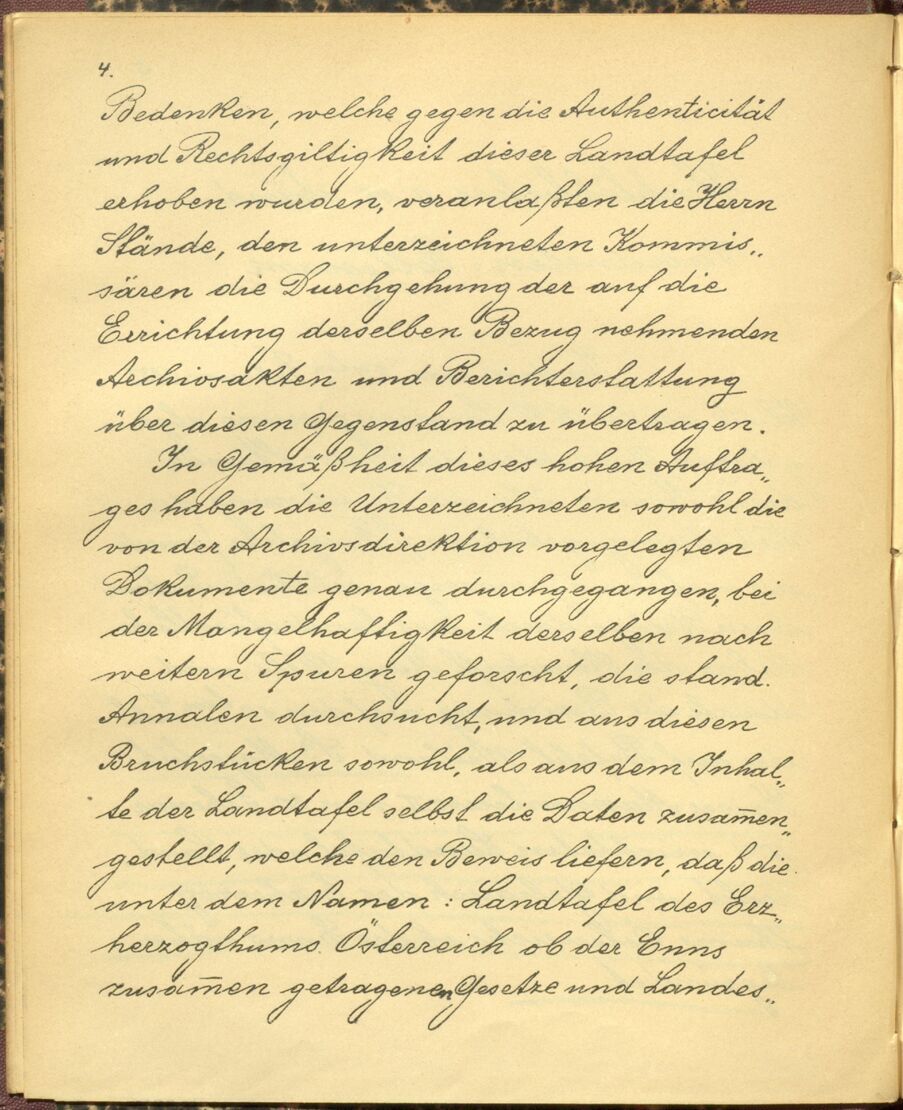 4.
Bedenken, welche gegen die Authenticität
und Rechtsgiltigkeit dieser Landtafel
erhoben wurden, veranlaßten die Herrn
Stände, den unterzeichneten Kommis„
sären die Durchgehung der auf die
Errichtung derselben Bezug nehmenden
Archivsakten und Berichterstattung
über diesen Gegenstand zu übertragen.
In Gemäßheit dieses hohen Auftra„
ges haben die Unterzeichneten sowohl die
von der Archivsdirektion vorgelegten
Dokumente genau durchgegangen, bei
der Mangelhaftigkeit derselben nach
weitern Spuren geforscht, die stand.
Annalen durchsucht, und aus diesen
Bruchstücken sowohl, als aus dem Inhal„
te der Landtafel selbst die Daten zusam̅en„
gestellt, welche den Beweis liefern, daß die
unter dem Namen : Landtafel des Erz„
herzogthums Österreich ob der Enns
zusam̅en getragenen Gesetze und Landes„